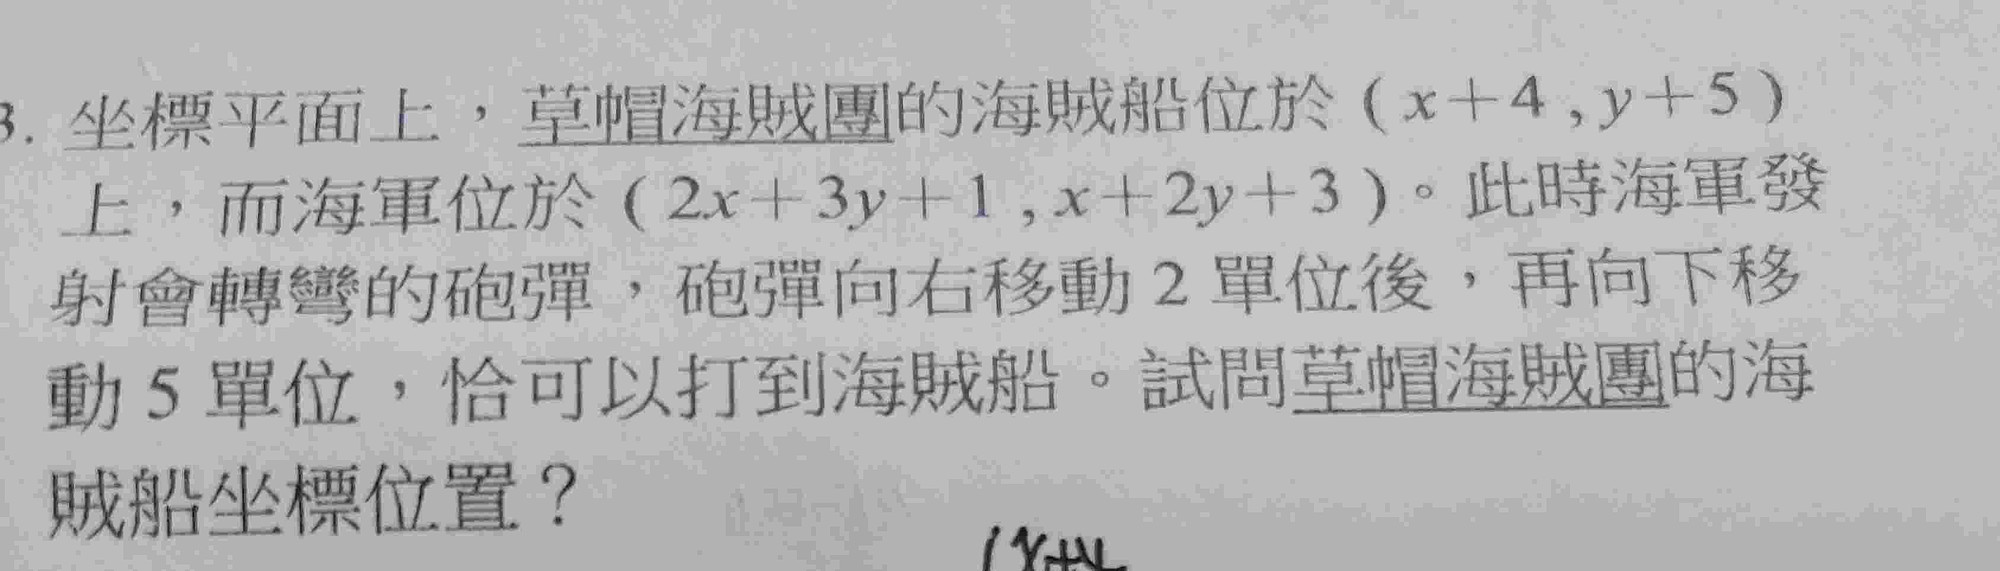 3. 坐標平面上，草帽海賊團的海賊船位於（x＋4 , y＋5）
上，而海軍位於（2x＋3y＋1 , x＋2y＋3）。此時海軍發
射會轉彎的砲彈，砲彈向右移動 2 單位後，再向下移
動 5 單位，恰可以打到海賊船。試問草帽海賊團的海
賊船坐標位置？